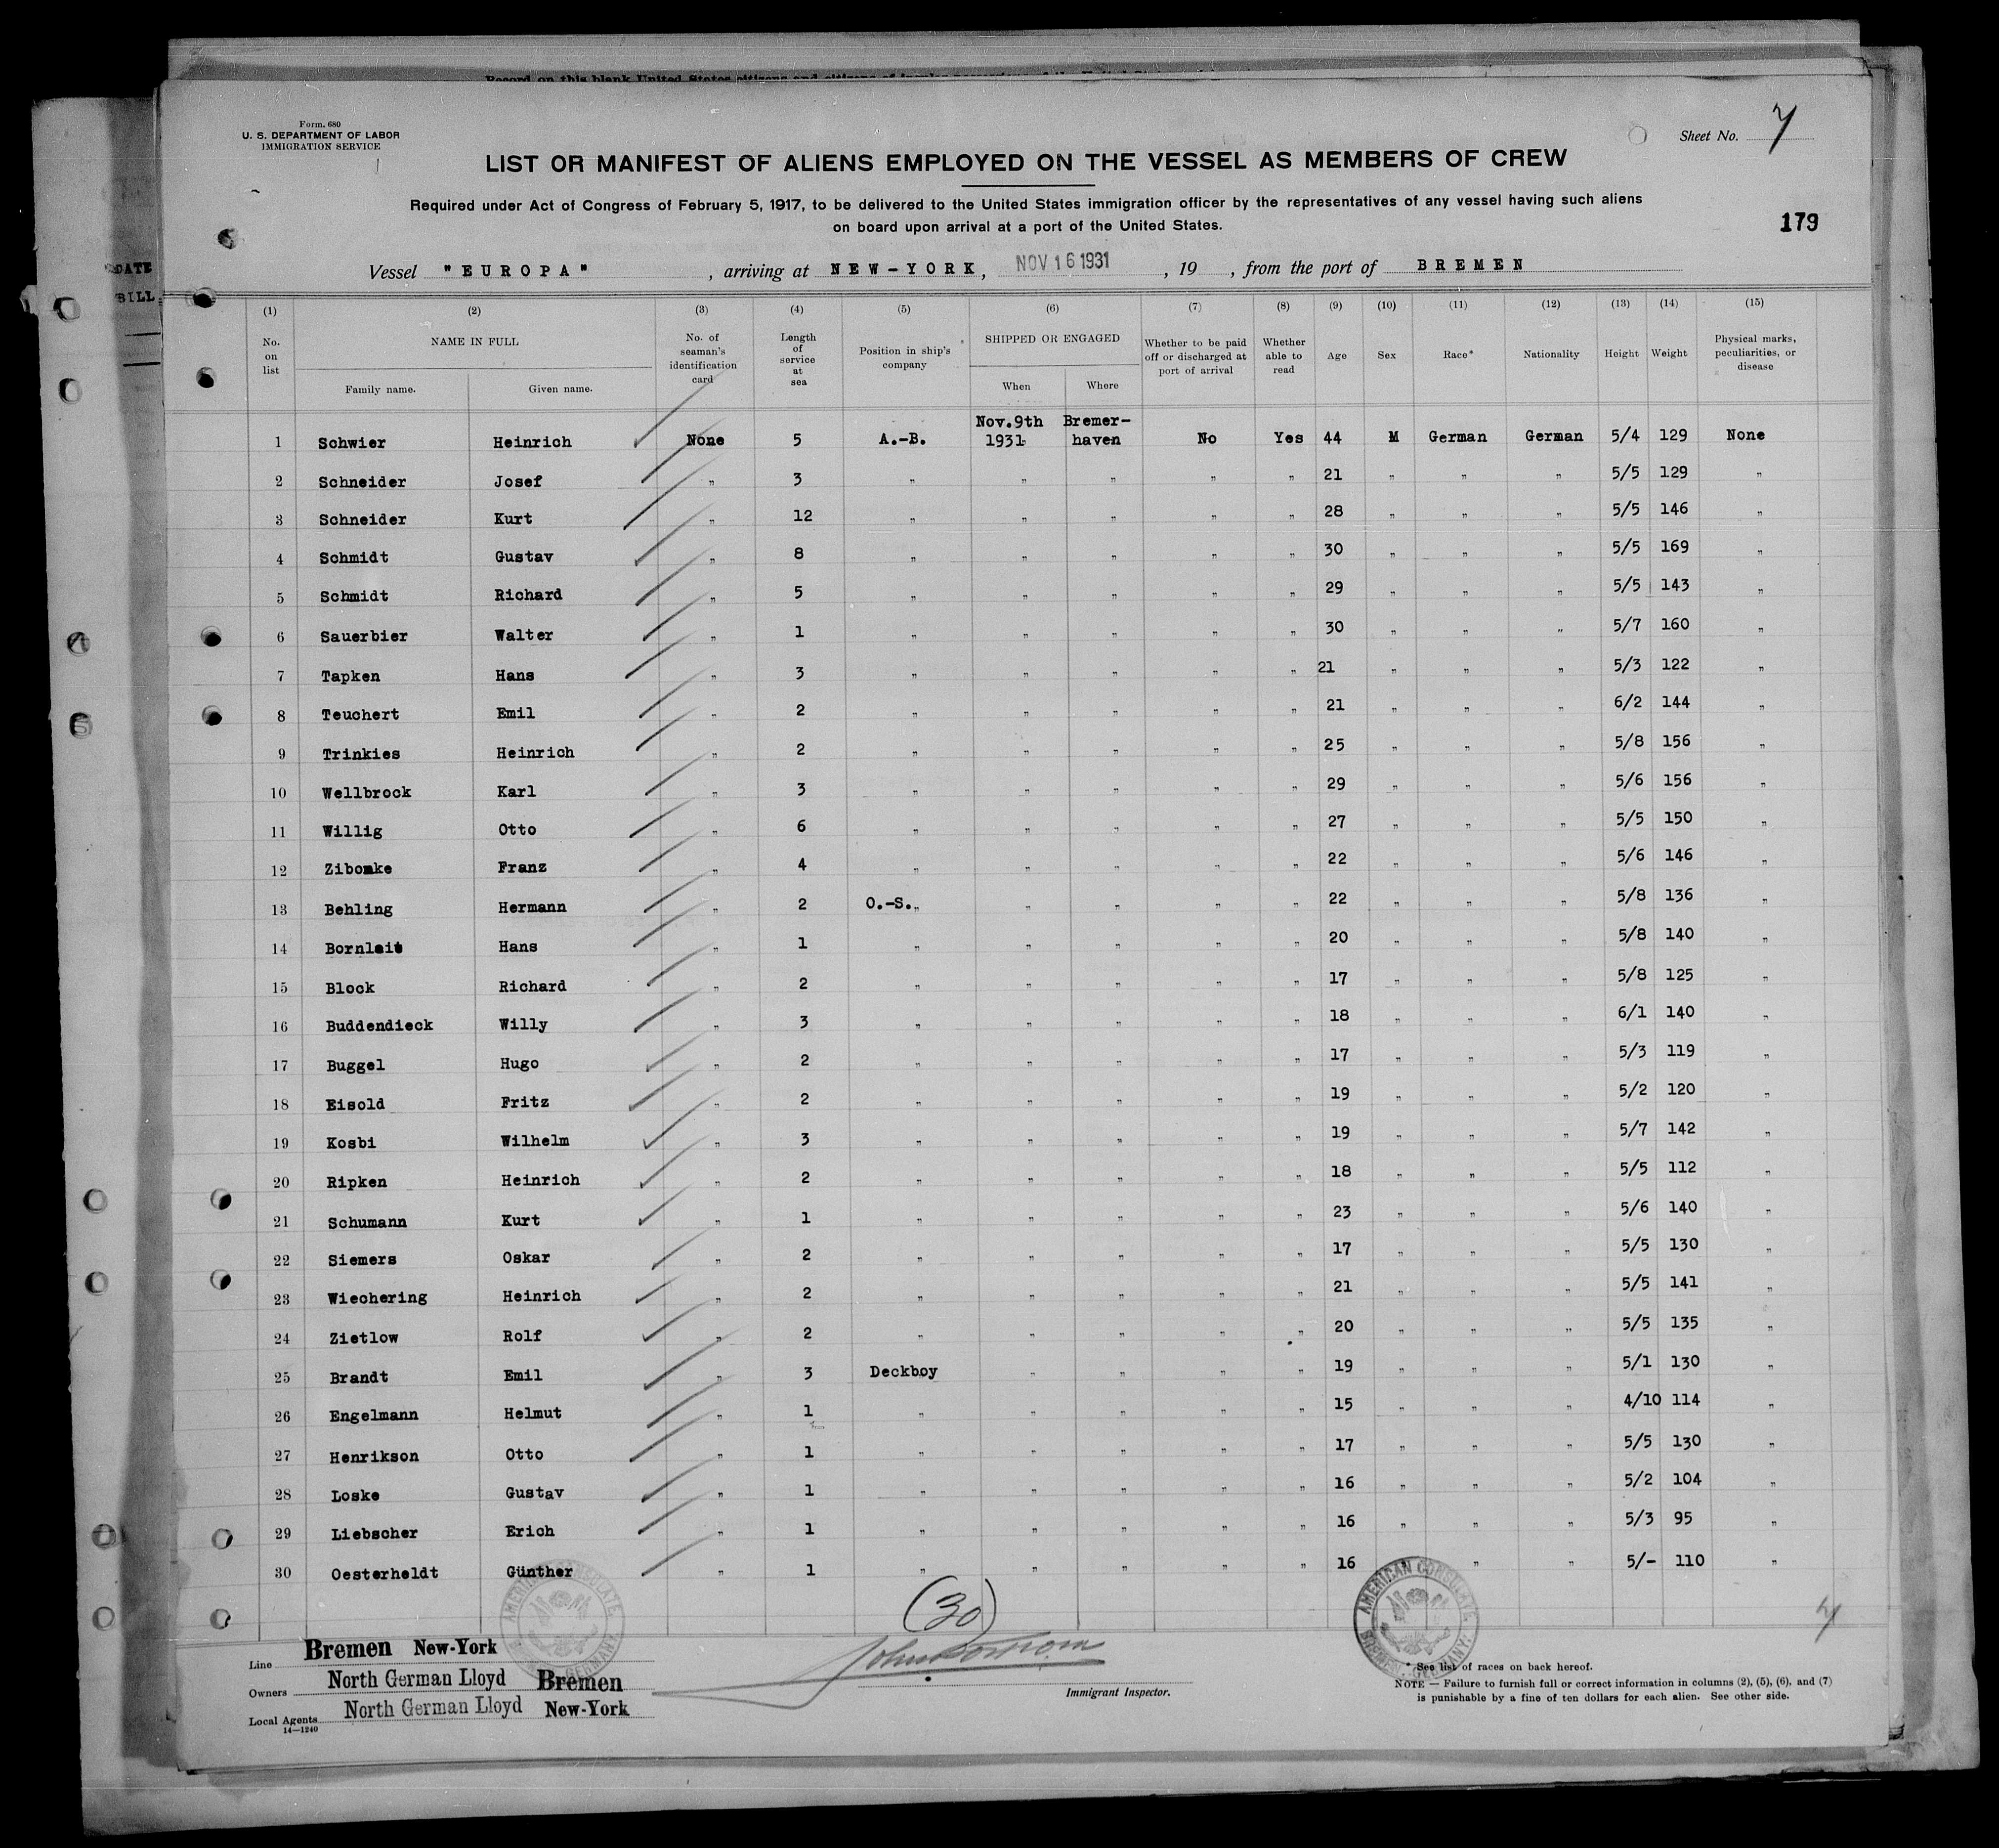 Record on this blank United States citizens and citizens of insular possessions of the United States
DATE
BILL
Form. 680
U. S. DEPARTMENT OF LABOR
IMMIGRATION SERVICE
Sheet No. 7
LIST OR MANIFEST OF ALIENS EMPLOYED ON THE VESSEL AS MEMBERS OF CREW
Required under Act of Congress of February 5, 1917, to be delivered to the United States immigration officer by the representatives of any vessel having such aliens
on board upon arrival at a port of the United States.
179
Vessel "EUROPA", arriving at NEW-YORK, NOV 16 1931, 19 , from the port of BREMEN
(1) (2) (3) (4) (5) (6) (7) (8) (9) (10) (11) (12) (13) (14) (15)
No. on list NAME IN FULL Family name. Given name. No. of seaman's identification card Length of service at sea Position in ship's company SHIPPED OR ENGAGED When Where Whether to be paid off or discharged at port of arrival Whether able to read Age Sex Race* Nationality Height Weight Physical marks, peculiarities, or disease
1 Schwier Heinrich None 5 A.-B. Nov.9th 1931 Bremer-haven No Yes 44 M German German 5/4 129 None
2 Schneider Josef " 3 " " " " " 21 " " " 5/5 129 "
3 Schneider Kurt " 12 " " " " " 28 " " " 5/5 146 "
4 Schmidt Gustav " 8 " " " " " 30 " " " 5/5 169 "
5 Schmidt Richard " 5 " " " " " 29 " " " 5/5 143 "
6 Sauerbier Walter " 1 " " " " " 30 " " " 5/7 160 "
7 Tapken Hans " 3 " " " " " 21 " " " 5/3 122 "
8 Teuchert Emil " 2 " " " " " 21 " " " 6/2 144 "
9 Trinkies Heinrich " 2 " " " " " 25 " " " 5/8 156 "
10 Wellbrock Karl " 3 " " " " " 29 " " " 5/6 156 "
11 Willig Otto " 6 " " " " " 27 " " " 5/5 150 "
12 Zibomke Franz " 4 " " " " " 22 " " " 5/6 146 "
13 Behling Hermann " 2 O.-S." " " " " 22 " " " 5/8 136 "
14 Bornleit Hans " 1 " " " " " 20 " " " 5/8 140 "
15 Block Richard " 2 " " " " " 17 " " " 5/8 125 "
16 Buddendieck Willy " 3 " " " " " 18 " " " 6/1 140 "
17 Buggel Hugo " 2 " " " " " 17 " " " 5/3 119 "
18 Eisold Fritz " 2 " " " " " 19 " " " 5/2 120 "
19 Kosbi Wilhelm " 3 " " " " " 19 " " " 5/7 142 "
20 Ripken Heinrich " 2 " " " " " 18 " " " 5/5 112 "
21 Schumann Kurt " 1 " " " " " 23 " " " 5/6 140 "
22 Siemers Oskar " 2 " " " " " 17 " " " 5/5 130 "
23 Wiechering Heinrich " 2 " " " " " 21 " " " 5/5 141 "
24 Zietlow Rolf " 2 " " " " " 20 " " " 5/5 135 "
25 Brandt Emil " 3 Deckboy " " " " 19 " " " 5/1 130 "
26 Engelmann Helmut " 1 " " " " " 15 " " " 4/10 114 "
27 Henrikson Otto " 1 " " " " " 17 " " " 5/5 130 "
28 Loske Gustav " 1 " " " " " 16 " " " 5/2 104 "
29 Liebscher Erich " 1 " " " " " 16 " " " 5/3 95 "
30 Oesterheldt Günther " 1 " " " " " 16 " " 5/- 110 "
(30)
AMERICAN CONSULATE BREMEN, GERMANY.
AMERICAN CONSULATE BREMEN, GERMANY.
Line Bremen New-York
Owners North German Lloyd Bremen
Local Agents North German Lloyd New-York
14—1240
Immigrant Inspector.
* See list of races on back hereof.
NOTE — Failure to furnish full or correct information in columns (2), (5), (6), and (7)
is punishable by a fine of ten dollars for each alien. See other side.